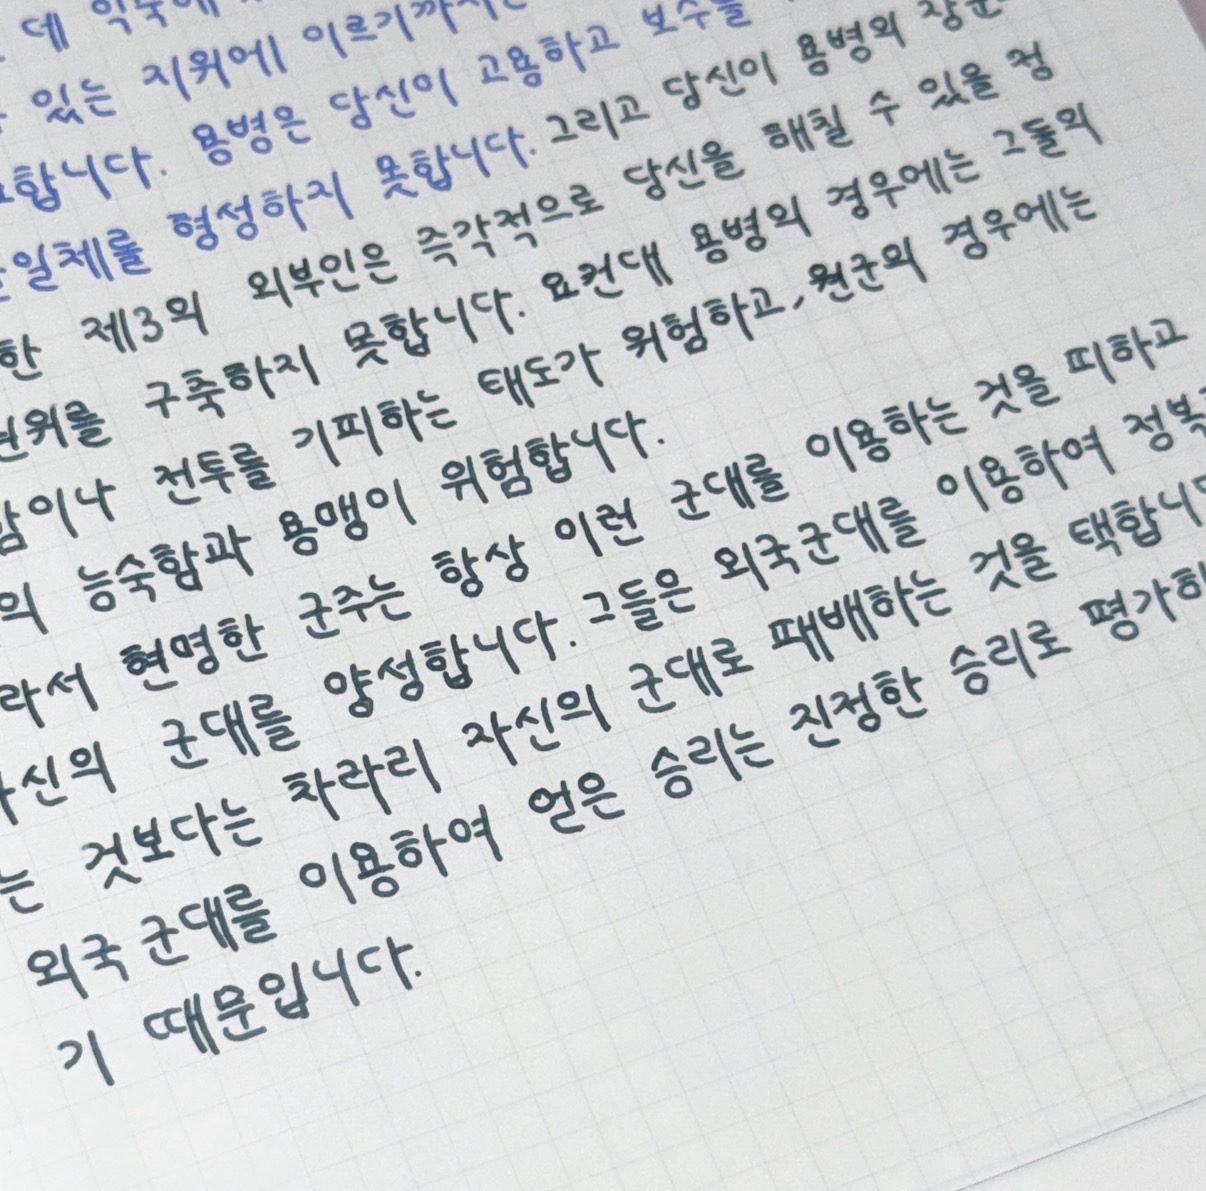 데
있는 지위에 이르기까지는
합니다. 용병은 당신이 고용하고 보수를
일체를 형성하지 못합니다. 그리고 당신이 용병의 장군
한 제3의 외부인은 즉각적으로 당신을 해칠 수 있을 정
권위를 구축하지 못합니다. 요컨대 용병의 경우에는 그들의
이나 전투를 기피하는 태도가 위험하고, 원군의 경우에는
의 능숙함과 용맹이 위험합니다.
라서 현명한 군주는 항상 이런 군대를 이용하는 것을 피하고
자신의 군대를 양성합니다. 그들은 외국군대를 이용하여 정복
는 것보다는 차라리 자신의 군대로 패배하는 것을 택합니다
외국 군대를 이용하여 얻은 승리는 진정한 승리로 평가하
기 때문입니다.